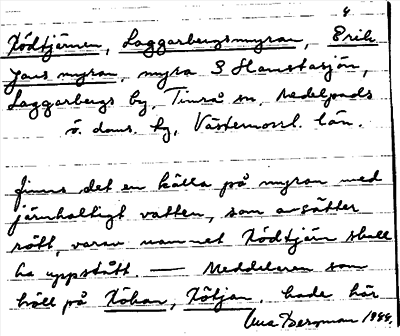 4
Rödtjärnen, Laggarbergsmyran, Erik
Jans myran, myra S Hamstasjön,
Laggarbergs by, Timrå sn, Medelpads
ö. doms. hg, Västernorrl. län.
finns det en källa på myran med
järnhaltigt vatten, som avsätter
rött, varav namnet Rödtjärn skall
ha uppstått. — Meddelaren som
höll på Röban, Rötjan. hade här
Bergman 1944.